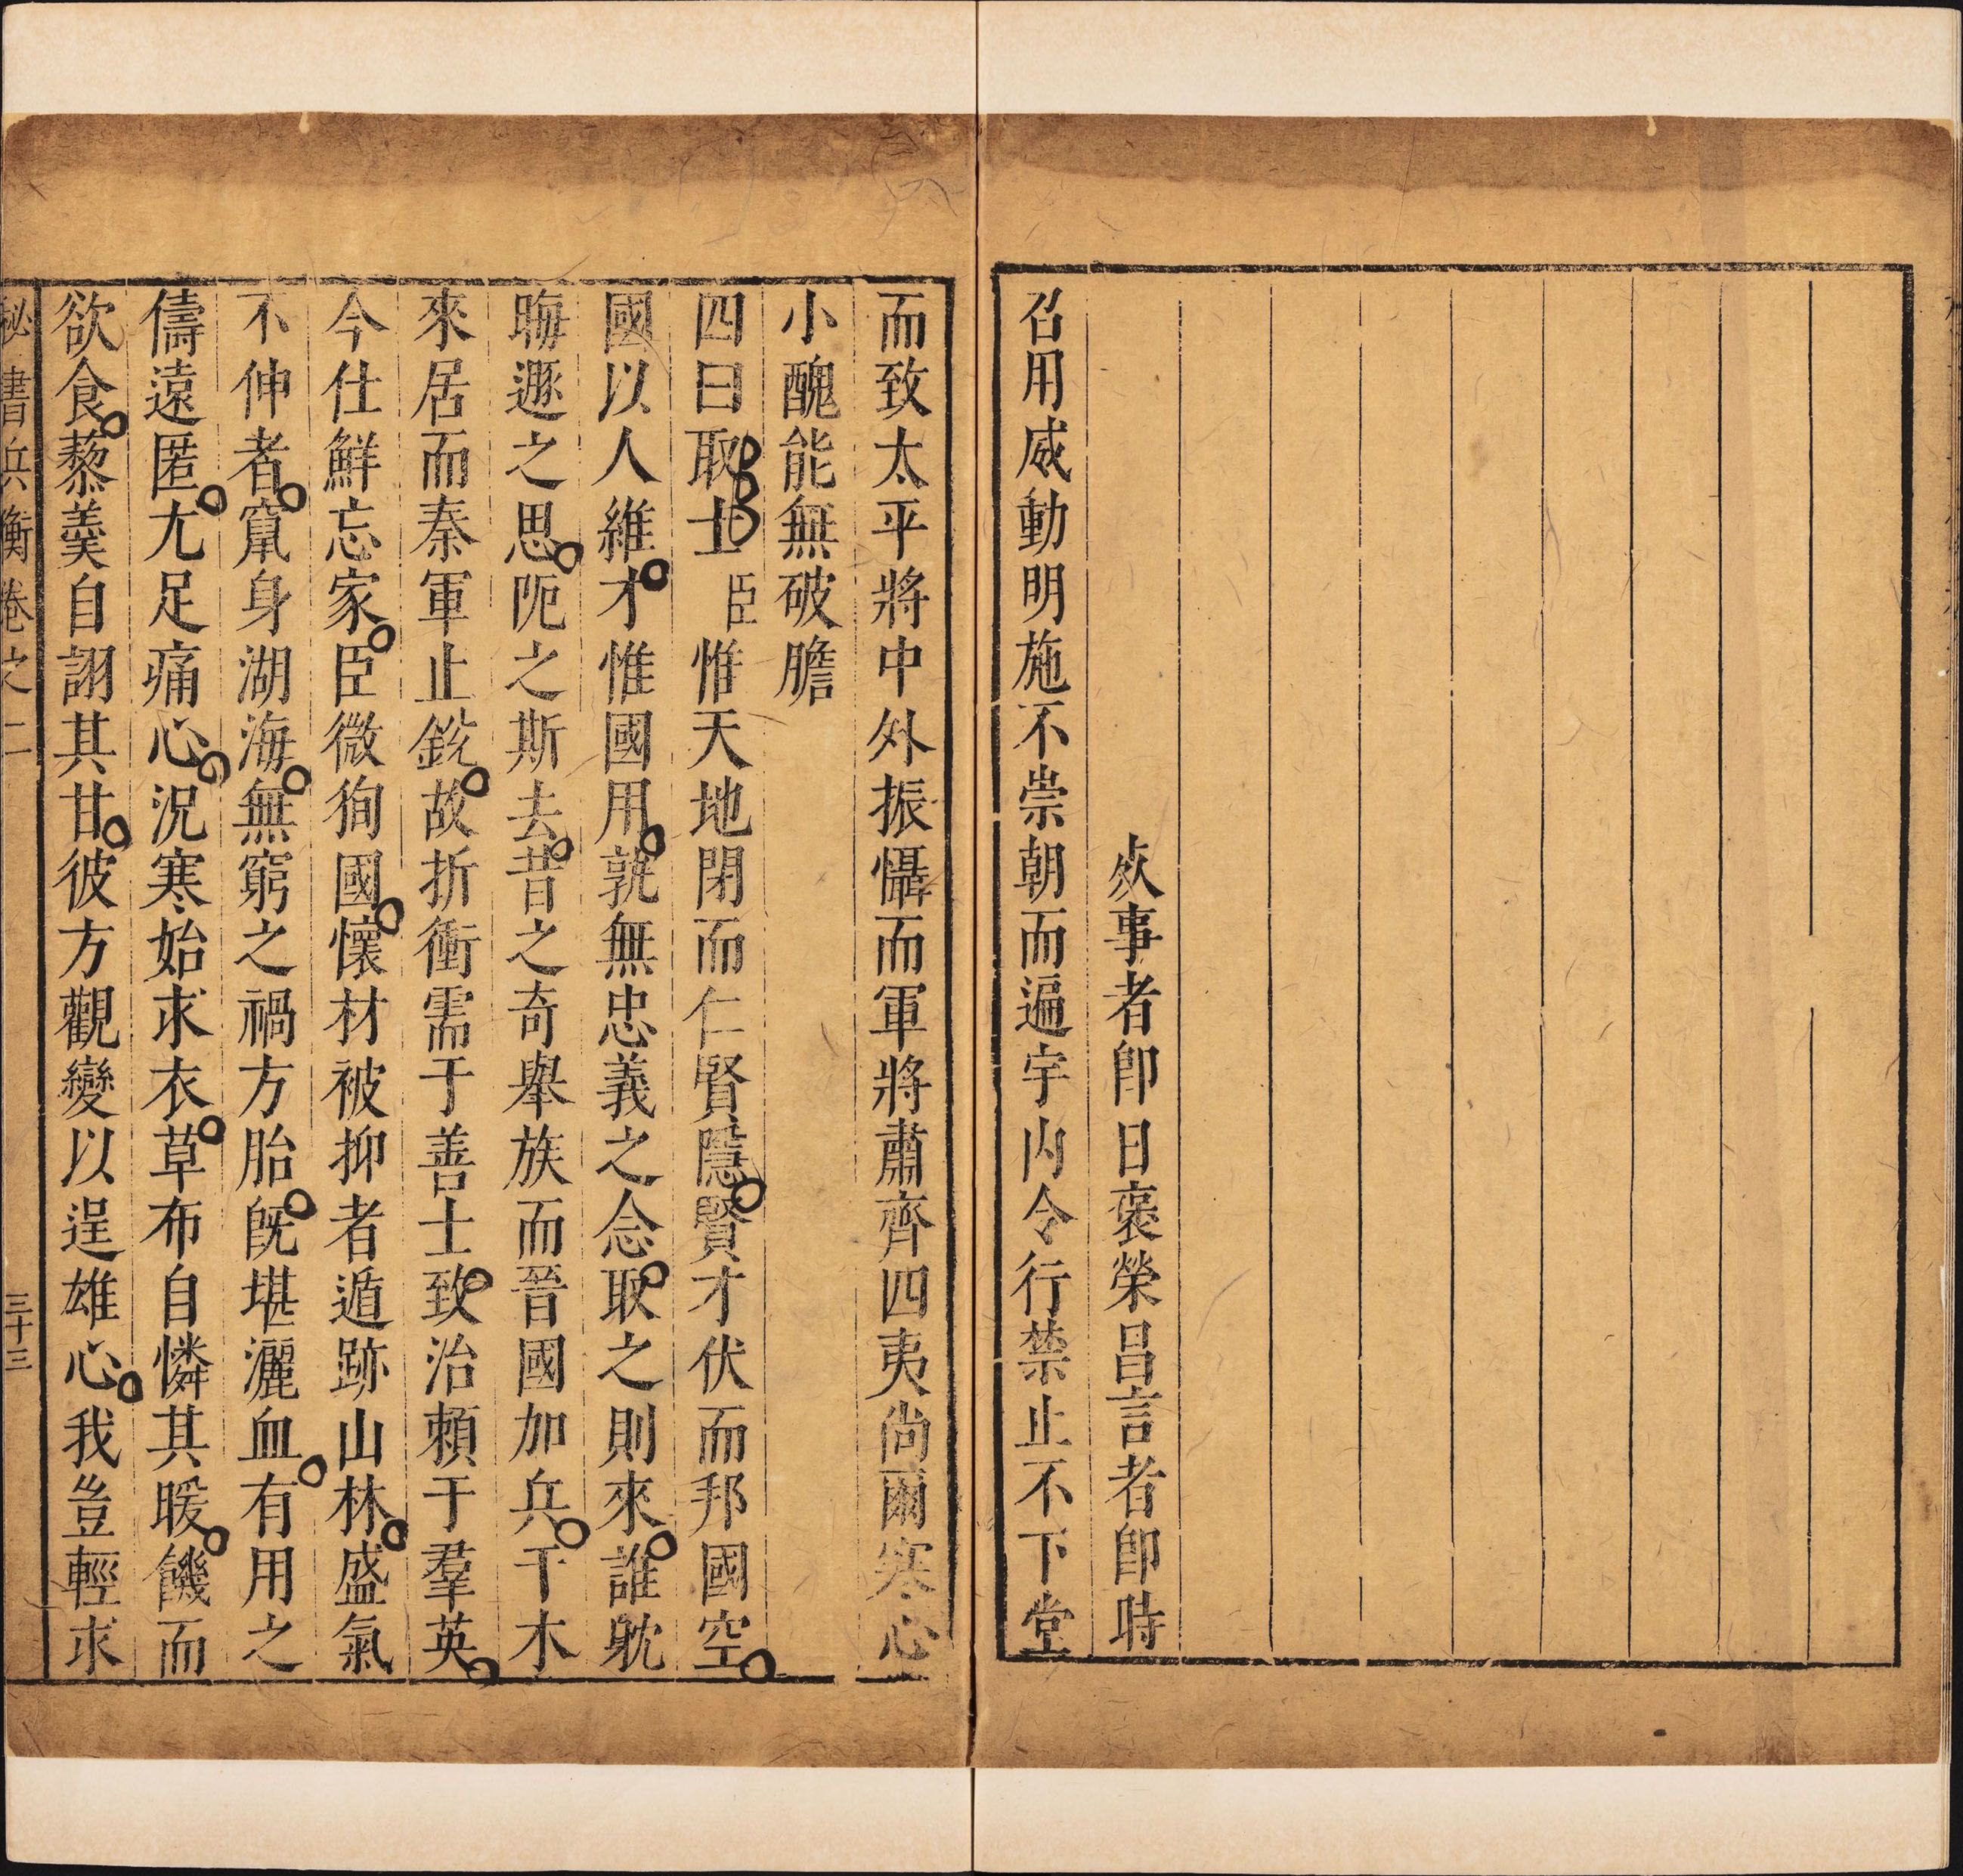 炏事者卽日褒榮昌言者卽時
召用威動明施不崇朝而遍宇內令行禁止不下堂
而致太平將中外振懾而軍將肅齊四夷尙爾寒心
小醜能無破膽
四曰取士臣惟天地閉而仁賢隱賢才伏而邦國空
國以人維才惟國用孰無忠義之念取之則來誰躭
晦遯之思阨之斯去昔之奇舉族而晉國加兵干木
來居而秦軍止銳故折衝需于善士致治賴于羣英
今仕鮮忘家臣微狥國懷材被抑者遁跡山林盛氣
不伸者竄身湖海無窮之禍方胎旣堪灑血有用之
儔遠匿尢足痛心況寒始求衣草布自憐其暖饑而
欲食藜羹自詡其甘彼方觀變以逞雄心我豈輕求
秘書兵衡卷之二
三十三